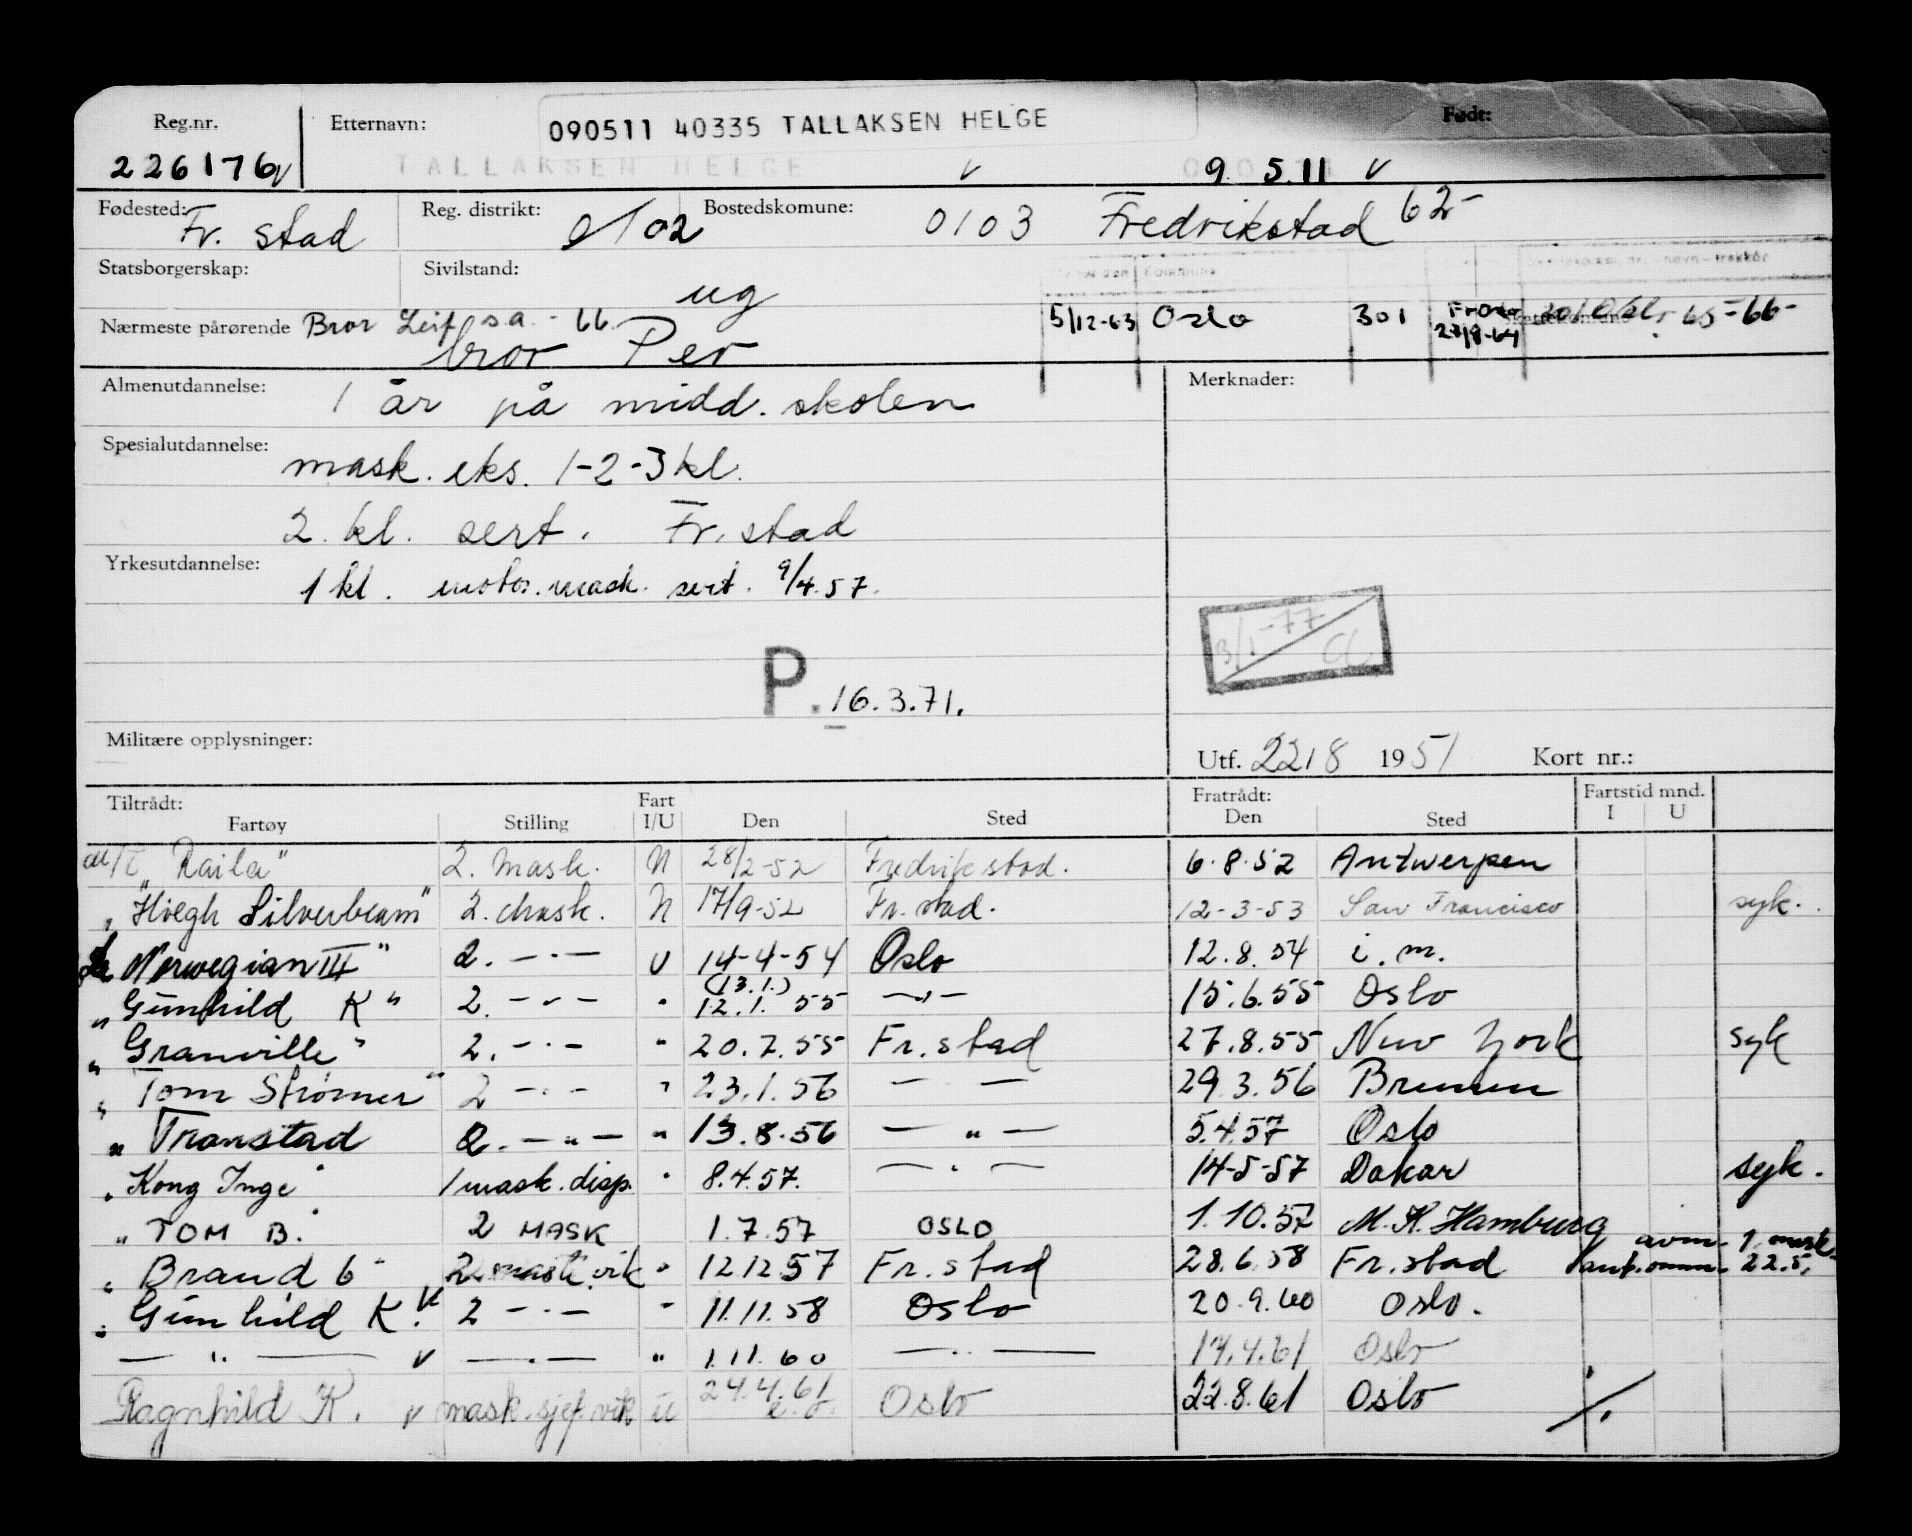 Reg.nr. Etternavn: 090511 40335 TALLAKSEN HELGE Født:
226176 v TALLAKSEN HELGE v 9. 5. 11 v
Fødested: Fr. stad Reg. distrikt: 0102 Bostedskomune: 0103 Fredrikstad 62-
Statsborgerskap: Sivilstand: ug
Nærmeste pårørende Bror Leif s.a. - 66. 5/12-63 Oslo 301 65-66-
bror Per
Almenutdannelse: 1 år på midd. skolen Merknader:
Spesialutdannelse: mask. eks. 1-2-3 kl.
2. kl. sert. Fr. stad
Yrkesutdannelse: 1 kl. motor.mask. sert. 9/4.57.
3/1-77
P. 16.3.71.
Militære opplysninger:
Utf. 22/8 1951 Kort nr.:
Tiltrådt: Fart Fratrådt: Fartstid mnd.
Fartøy Stilling I/U Den Sted Den Sted I U
M/T "Raila" 2. Mask. N 28/2-52 Fredrikstad. 6.8.52 Antwerpen
" "Höegh Silverbeam" 2. Mask. N 17/9-52 Fr. stad. 12-3-53 San Francisco syk.
Norwegian III" 2. -·- U 14-4-54 Oslo 12.8.54 i. m.
(13.1.)
" Gunhild K" 2. -"- " 12.1. 55 -"- 15.6.55 Oslo
" Granville" 2. -·- " 20.7.55 Fr. stad 27.8.55 New York syk
" Tom Strømer" 2 -·- " 23.1.56 — — 29.3.56 Bremen
" Transtad 2. -"- " 13.8.56 — " — 5.4.57 Oslo
" Kong Inge" 1 mask. disp. " 8.4.57. — " — 14-5-57 Dakar syk.
" TOM B." 2 MASK 1.7.57 OSLO 1.10.57 M.K. Hamburg
" Brand 6" 2 mask. vik " 12.12.57 Fr. stad 28.6.58 Fr. stad avm. 1. mask. 22.5.
" Gunhild K." v 2 -·- " 11.11.58 Oslo 20.9.60 Oslo.
— " — v — · — " 1.11.60 — " — 17.4.61 Oslo
Ragnhild K. v mask.sjef.vik U 24.4.61 Oslo 22.8.61 Oslo ./.